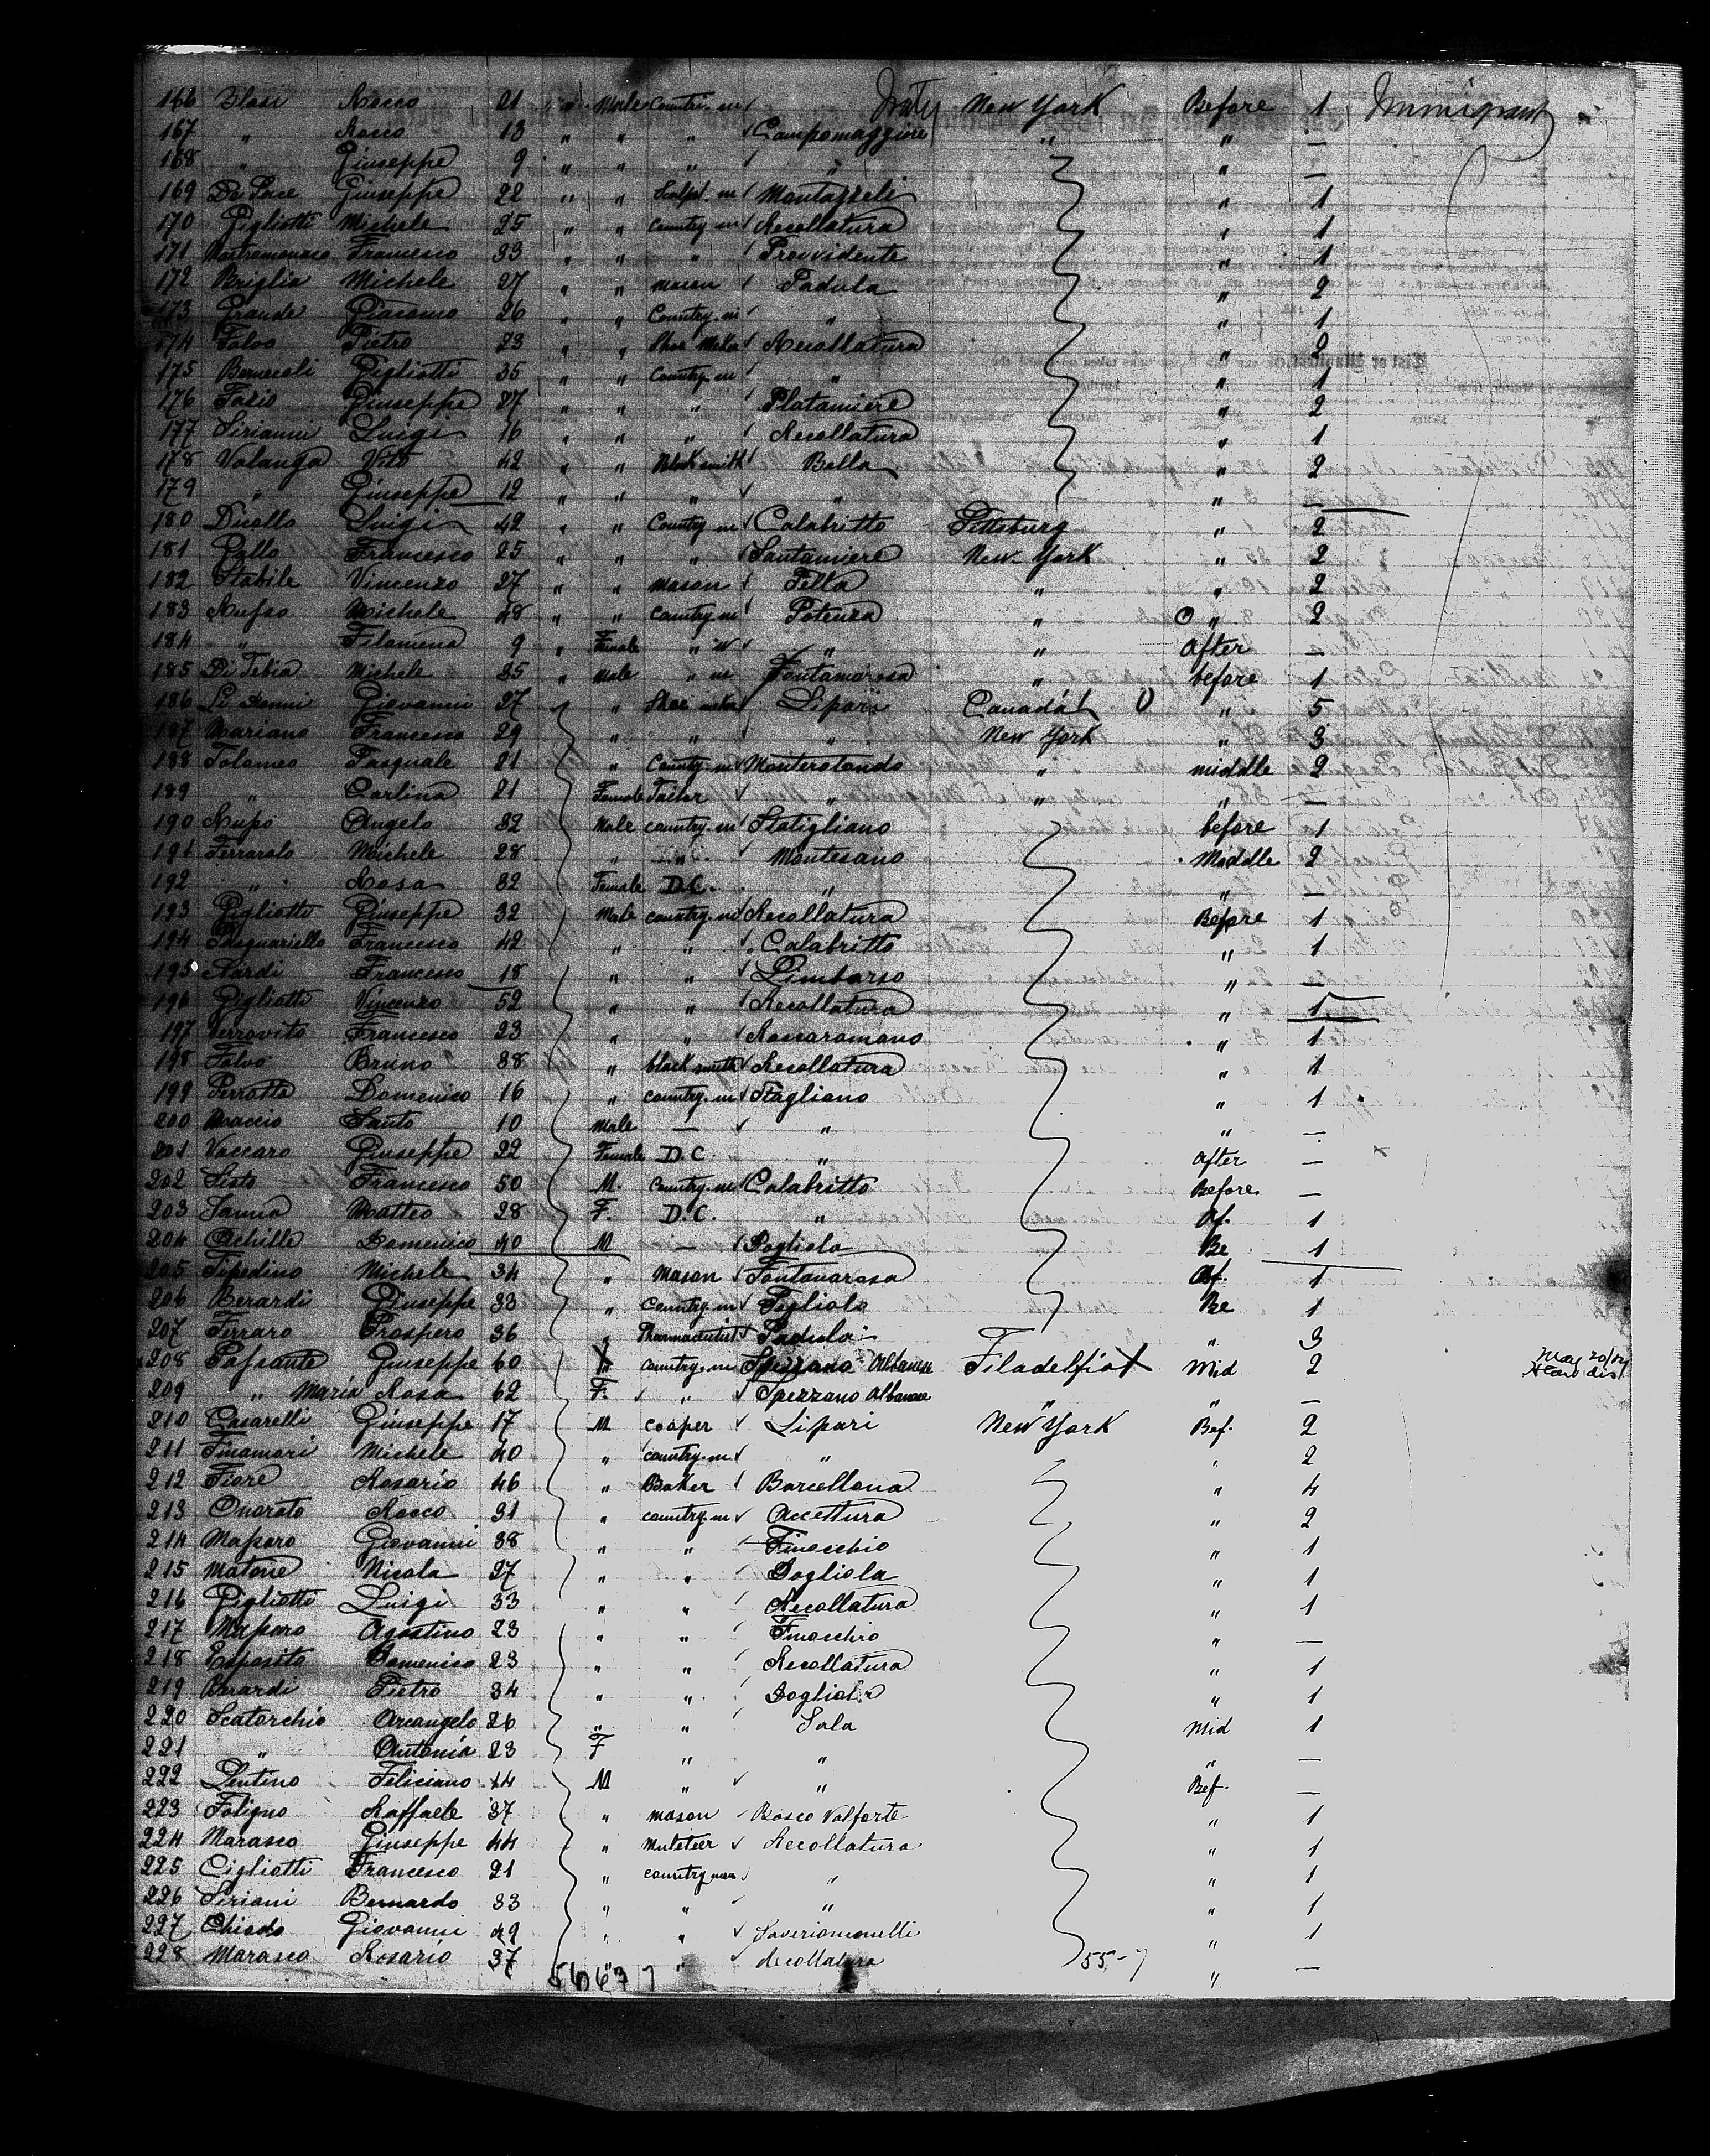 166 Blasi Rocco 21 " Male Countri.m Italy New York Before 1 Immigrant
167 " Rocco 13 " " " Campomaggiore " " —
168 " Giuseppe 9 " " " " " —
169 De Pace Giuseppe 22 " " Sculpt. m Montazzeli " 1
170 Gigliotti Michele 25 " " Country m Recollatura " 1
171 Mastromonaco Francesco 33 " " " Provvidente " 1
172 Briglia Michele 27 " " mason Padula " 2
173 Grande Giacomo 26 " " Country.m " " 1
174 Falvo Pietro 23 " " Shoe Maker Recollatura " 2
175 Gigliotti 35 " " Country m " " 1
176 Fazio Giuseppe 37 " " " Platamiere " 2
177 Sirianni Luigi 16 " " " Recollatura " 1
178 Valanga Vito 42 " " Blaksmith Bella " 2
179 " Giuseppe 12 " " " " " —
180 Dicello Luigi 42 " " Country m Calabritto Pittsburg " 2
181 Gallo Francesco 25 " " " Santamiere New-York " 2
182 Stabile Vincenzo 27 " " mason Fella " " 2
183 Michele 48 " " country.m Potenza " " 2
184 " Filomena 9 " Female " " " After —
185 Di Tebia Michele 35 " Male " m Fontamorosa " before 1
186 Giovanni 27 " Shoe maker Liparis Canadá " 5
187 Mariano Francesco 29 " " " New York " 3
188 Tolomeo Pasquale 21 " Country.m Monterotondo " middle 2
189 " Carlina 21 Female Tailor " " " —
190 Rupo Angelo 32 Male country.m Statigliano before 1
191 Ferrarolo Michele 28 " " Montesano Middle 2
192 " Rosa 32 Female D.C. " " —
193 Gigliotti Giuseppe 32 Male country.m Recollatura Before 1
194 Pasquariello Francesco 42 " " Calabritto " 1
195 Nardi Francesco 18 " " Limbarso " —
196 Gigliotti Vincenzo 52 " " Recollatura " 1
197 Verrovito Francesco 23 " " Roccaromano " 1
198 Falvo Bruno 38 " black smith Recollatura " 1
199 Perrotta Domenico 16 " country.m Stagliano " 1
200 Maccio Santo 10 Male — " " —
201 Vaccaro Giuseppe 22 Female D.C. " After —
202 Sisto Francesco 50 M. Country.m Calabritto Before —
203 Sanna Matteo 28 F. D.C. " Af. 1
204 Achille Domenico 40 M — Pogliola Be 1
205 Tipedino Michele 34 " Mason Fontanarosa Af. 1
206 Berardi Giuseppe 33 " Country.m Pogliola Be 1
207 Ferraro Prospero 36 " Pharmacutist Padula " 3
208 Passante Giuseppe 60 country.m Spezzano Albanese Filadelfia Mid 2 May 20/04
209 " Maria Rosa 62 F. " Spezzano Albanese " " —
210 Casarelli Giuseppe 17 M cooper Lipari New York Bef. 2
211 Finamori Michele 40 " country.m " " 2
212 Fiore Rosario 46 " Baker Barcellona " 4
213 Onorato Rocco 31 " country.m Accettura " 2
214 Masaro Giovanni 38 " " Finocchio " 1
215 Matone Nicola 27 " " Dogliola " 1
216 Gigliotti Luigi 33 " " Recollatura " 1
217 Masaro Agostino 23 " " Finocchio " —
218 Esposito Domenico 23 " " Recollatura " 1
219 Berardi Pietro 34 " " Dogliola " 1
220 Scatorchio Arcangelo 26 " " Sala Mid 1
221 " Antonia 23 F " " " —
222 Lentino Feliciano 44 M " " Bef. —
223 Foligno Raffaele 37 " mason Bosco Valforte " 1
224 Marasco Giuseppe 44 " Muleteer Recollatura " 1
225 Cigliotti Francesco 21 " country man " " 1
226 Siriani Bernardo 33 " " " " 1
227 Chiodo Giovanni 49 " " Saverionanelli " 1
228 Marasco Rosario 37 " " decollatura " —
55-7